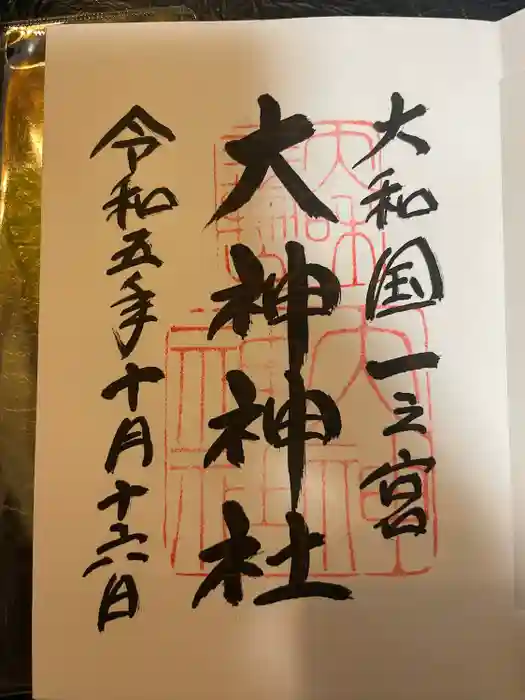 大和国一之宮
大神神社
令和五年十月十六日